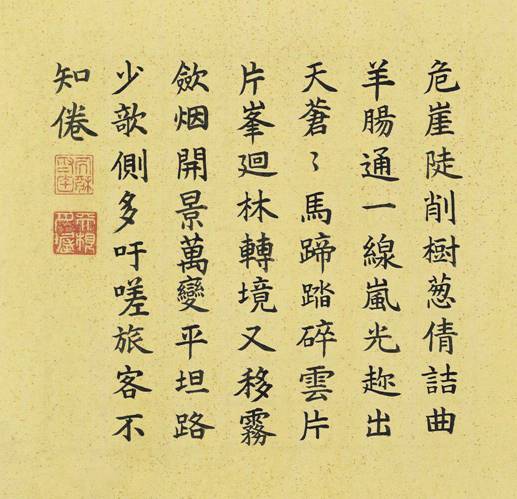 危崖陡削樹葱倩詰曲
羊腸通一線嵐光趂出
天蒼〻馬蹄踏碎雲片
片峯廻林轉境又移霧
歛烟開景萬變平坦路
少欹側多吁嗟旅客不
知倦